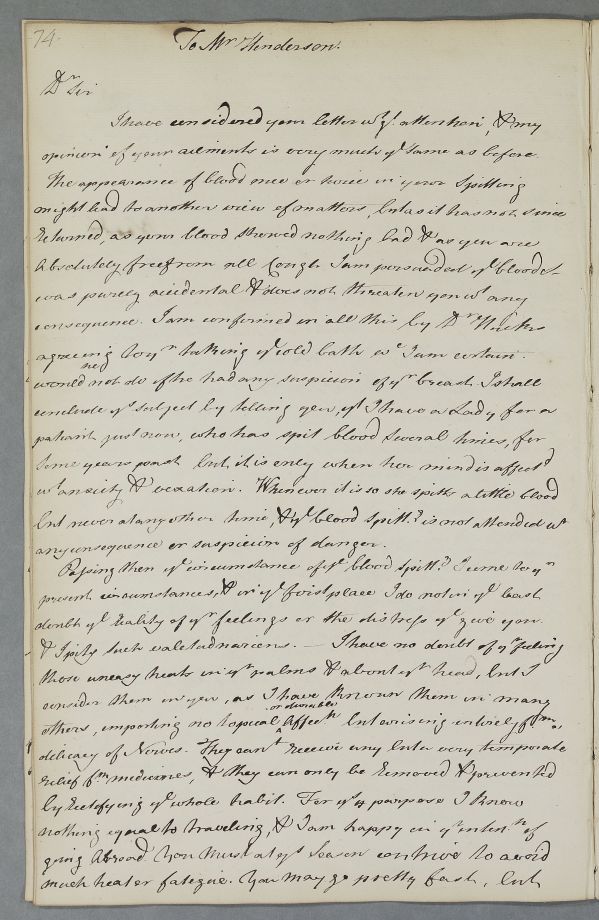 74.
To Mr Henderson.
Dr Sir
I have considered your letter wt gt. attention, & my
opinion of your ailments is very much ye same as before.
The appearance of blood once or twice in your Spitting
might lead to another view of matters, but as it has not since
returned, as your blood shewed nothing bad & as you are
absolutely free from all Cough I am persuaded ye blood
was purely accidental & does not threaten you wt any
consequence. I am confirmed in all this by Dr
agreeing to yr taking ye cold bath wc I am certain
he
would not do if he had any suspicion of yr breast. I shall
conclude ys subject by telling you, yt I have a Lady for a
patient just now, who has spit blood several times, for
some years past but it is only when her mind is affectd
wt anxiety & vexation. Whenever it is so she spits a little blood
but never at any other time, & ye blood spittg is not attended wt
any consequence or suspicion of danger.
Passing then ye circumstance of ye blood spittg I come to yr
present circumstances, & in ye first place I do not in ye least
doubt ye reality of yr feelings or the distress ye give you
& I pity such valetudinarians. — I have no doubt of yr feeling
those uneasy heats in yr palms & about yr head, but I
consider them in you, as I have known them in many
or durable
others, importing no topical Affectn but arising intirely from a
delicacy of Nerves. They can't receive any but a very temporate
relief fm medicines, & they can only be removed & prevented
by rectifying ye whole habit. For ys purpose I know
nothing equal to traveling, & I am happy in yr intentn of
going Abroad. You must at ys Season contrive to avoid
much heat or fatigue. You may go pretty fast, but